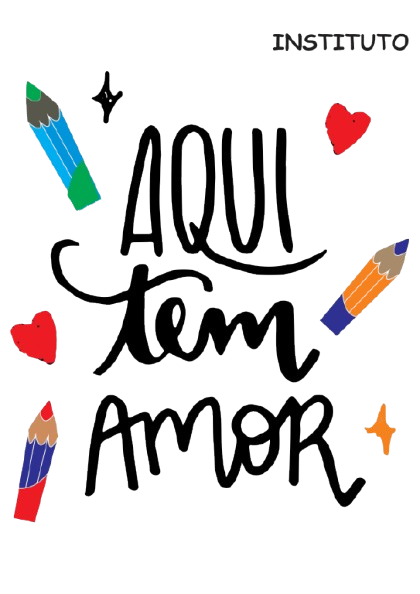 INSTITUTO
AQUI
tem
AMOR